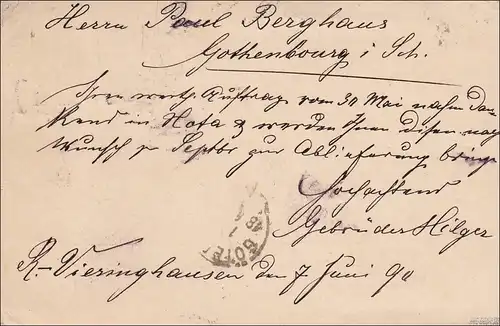 Herrn Paul Berghaus
Gothenbourg i Sch.
Ihren werth. Auftrag vom 30 Mai nahm dan
kend in Nota & werden Ihnen diesen nach
Wunsch pr Septbr zur Ablieferung bringen
Hochachtend
Gebrüder Hilger
R.-Vieringhausen den 7 Juni 90
GÖTE